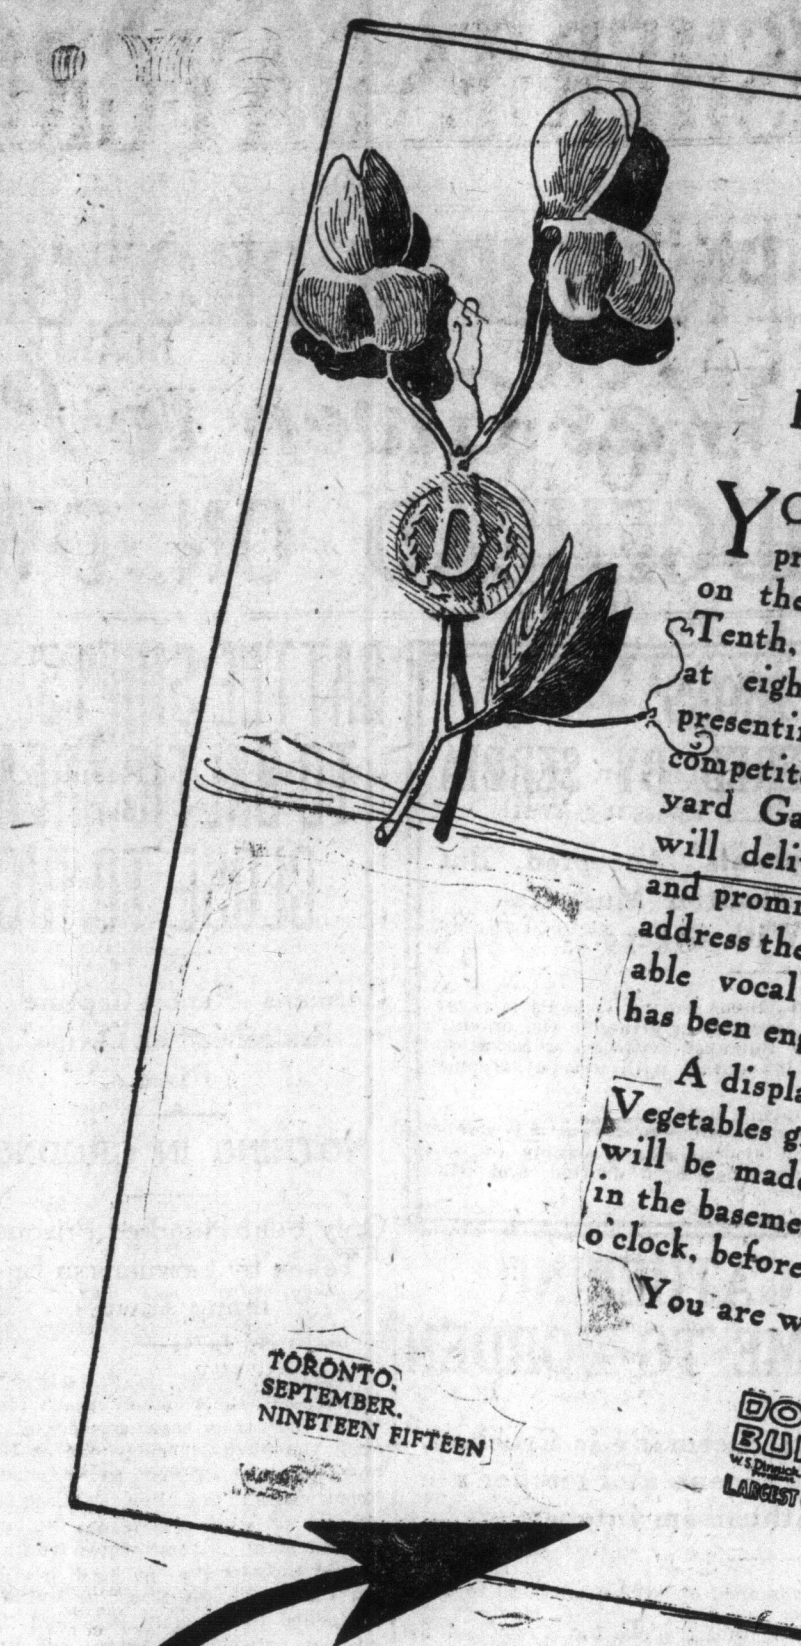 D
Yo
pr
on the
Tenth,
at eigh
presenti
competit
yard Ga
will deli
and promi
address the
able vocal
has been eng
A displa
Vegetables g
will be made
in the baseme
o'clock, before
You are w
TORONTO,
SEPTEMBER,
NINETEEN FIFTEEN
DO
BUI
W.S. Dinnick
LARGEST